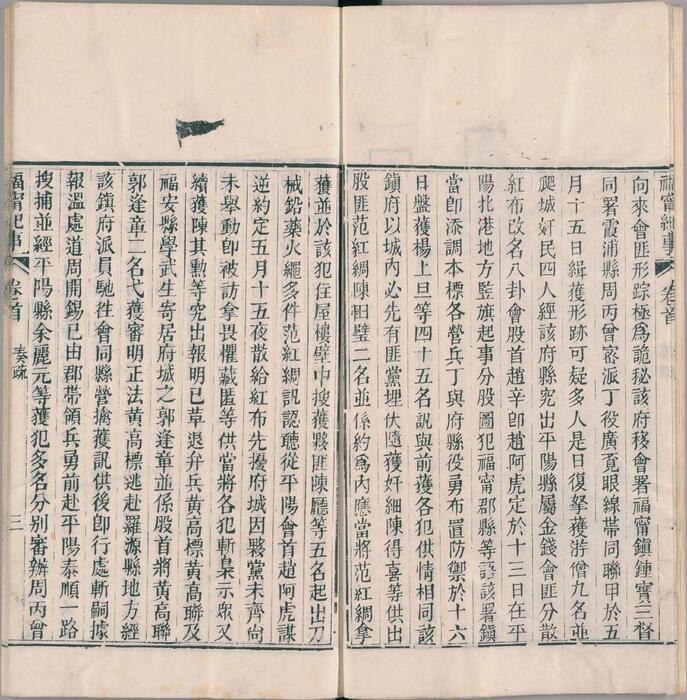 福甯紀事 卷首
向來會匪形踪極為詭秘該府移會署福甯鎮鍾寶三督
同署霞浦縣周丙曾密派丁役廣覓眼線帶同聯甲於五
月十五日緝獲形跡可疑多人是日復拏獲游僧九名並
爬城奸民四人經該府縣究出平陽縣屬金錢會匪分散
紅布改名八卦會股首趙辛卽趙阿虎定於十三日在平
陽北港地方監旗起事分股圖犯福甯郡縣等語該署鎮
當卽添調本標各營兵丁與府縣役勇布置防禦於十六
日盤獲楊上旦等四十五名訊與前獲各犯供情相同該
鎮府以城內必先有匪黨埋伏隨獲奸細陳得喜等供出
股匪范紅綢陳田璧二名並係約為內應當將范紅綢拿
獲並於該犯住屋樓壁中搜獲夥匪陳廳等五名起出刀
械鉛藥火繩多件范紅綢訊認聽從平陽會首趙阿虎謀
逆約定五月十五夜散給紅布先擾府城因夥黨未齊尙
未舉動卽被訪拿畏懼藏匿等供當將各犯斬梟示眾又
續獲陳其勳等究出報明已草退弁兵黃高標黃高聯及
福安縣學武生寄居府城之郭逢章並係股首將黃高聯
郭逢章二名弋獲審明正法黃高標逃赴羅源縣地方經
該鎮府派員馳往會同縣營擒獲訊供後卽行處斬嗣據
報溫處道周開錫已由郡帶領兵勇前赴平陽泰順一路
搜捕並經平陽縣余麗元等獲犯多名分別審辦周丙曾
福甯紀事 卷首 奏疏 三